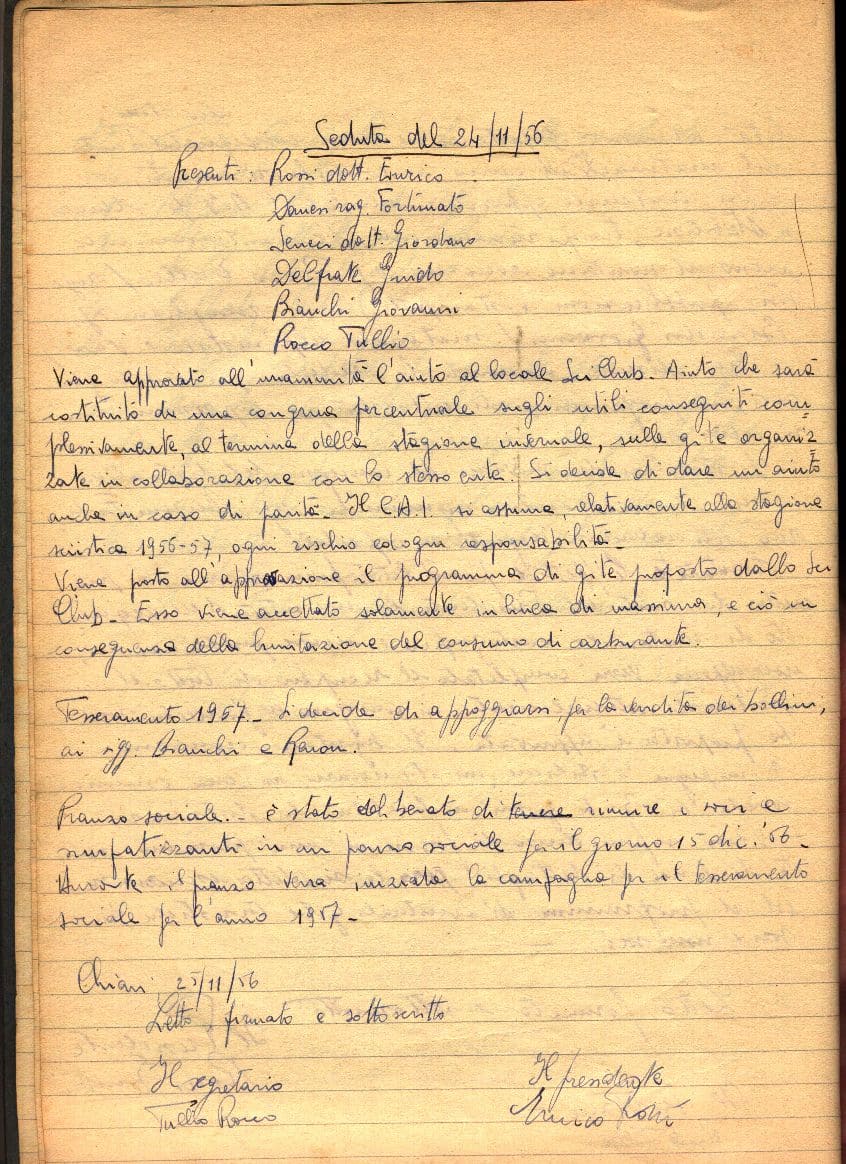 Seduta del 24/11/56
Presenti: Rossi dott. Enrico
Danesi rag. Fortunato
Seneci dott. Giordano
Delfrate Guido
Bianchi Giovanni
Rocco Tullio
Viene approvato all'unanimità l'aiuto al locale Sci Club. Aiuto che sarà
costituito da una congrua percentuale sugli utili conseguiti com=
plessivamente, al termine della stagione invernale, sulle gite organiz=
zate in collaborazione con lo stesso ente. Si decide di dare un aiuto
anche in caso di parità - Il C.A.I. si assume, relativamente alla stagione
sciistica 1956-57, ogni rischio ed ogni responsabilità -
Viene posto all'approvazione il programma di gite proposto dallo Sci
Club - Esso viene accettato solamente in linea di massima, e ciò in
conseguenza della limitazione del consumo di carburante.
Tesseramento 1957. - Si decide di appoggiarsi, per la vendita dei bollini,
ai sigg. Bianchi e
Pranzo sociale. - è stato deliberato di tenere riunire i soci e
simpatizzanti in un pranzo sociale per il giorno 15 dic. '56 -
Durante il pranzo verrà iniziata la campagna per il tesseramento
sociale per l'anno 1957 -
Chiari, 25/11/56
Letto firmato e sottoscritto
Il segretario Il presidente
Tullio Rocco Enrico Rossi